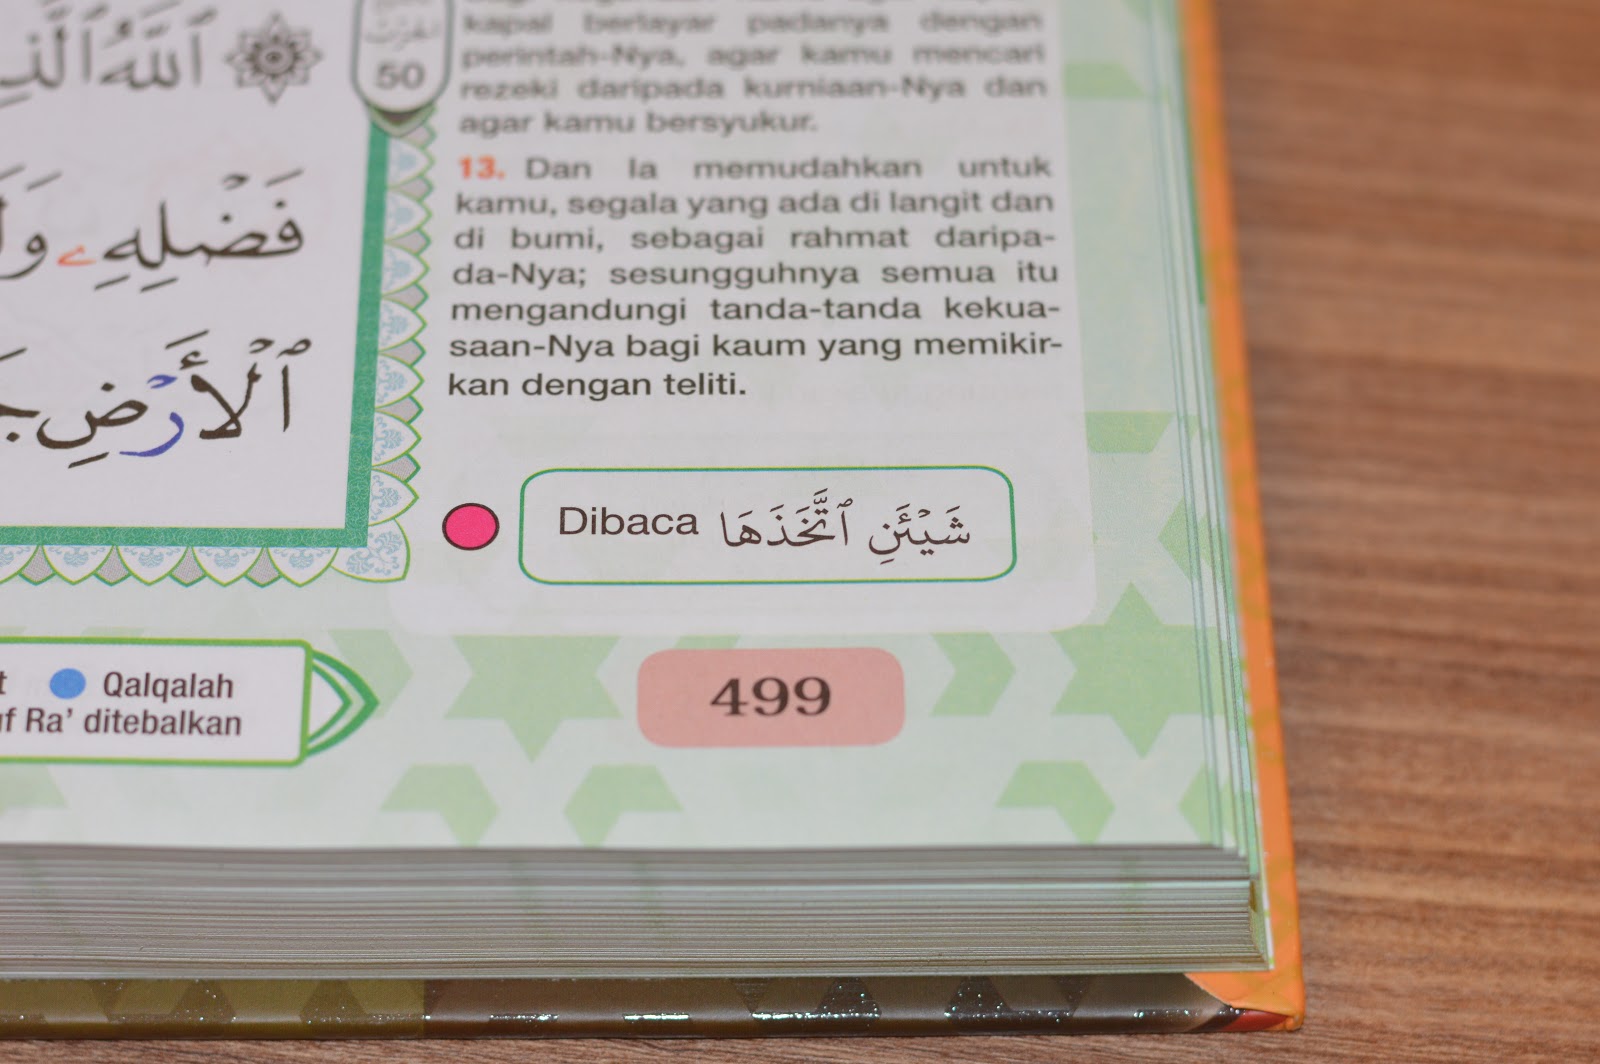 ٱللَّهُ ٱلَّذِ
فَضْلِهِۦ وَلَ
ٱلْأَرْضِ جَ
50
kapal berlayar padanya dengan
perintah-Nya, agar kamu mencari
rezeki daripada kurniaan-Nya dan
agar kamu bersyukur.
13. Dan Ia memudahkan untuk
kamu, segala yang ada di langit dan
di bumi, sebagai rahmat daripa-
da-Nya; sesungguhnya semua itu
mengandungi tanda-tanda kekua-
saan-Nya bagi kaum yang memikir-
kan dengan teliti.
Dibaca شَيْـَٔنِ ٱتَّخَذَهَا
t Qalqalah
uf Ra’ ditebalkan
499